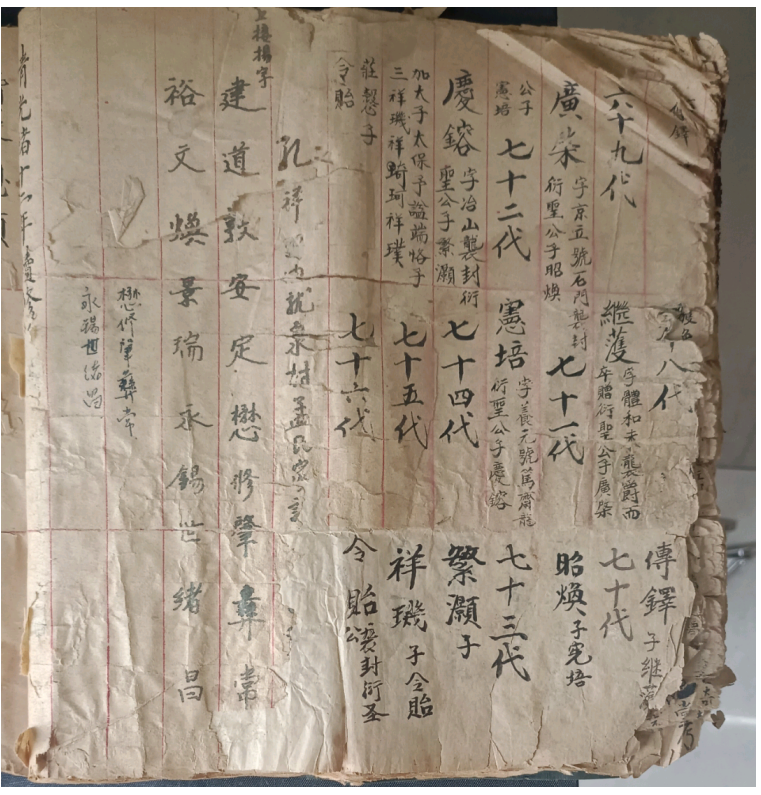 八代
傳鐸 子繼
六十九代
繼葊 字體和未襲爵而
卒贈衍聖公子廣棨
七十代
廣棨 字京立號石門襲封
衍聖公子昭煥
七十一代
昭煥 子憲培
公子
憲培
七十二代
憲培 字養元號篤齋
衍聖公子慶鎔
七十三代
慶鎔 字冶山襲封衍
聖公子繁灝
七十四代
繁灝 子
加太子太保予謚端恪子
三祥璣祥珂祥璞
七十五代
祥璣 子令貽
莊慤子
令貽
七十六代
令貽 襲封衍圣
公
孔祥
上接揚字
建道敦安定懋修肇彞常
裕文煥景瑞永錫世緒昌
懋修肇彞常
永錫世緒昌
清光緒十二年